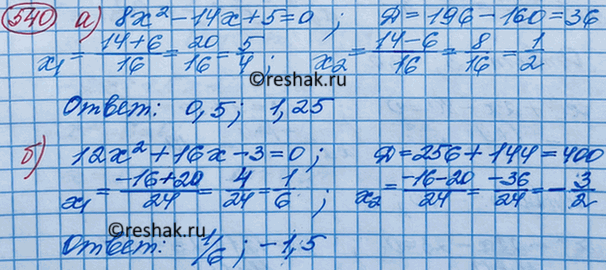 540 а) 8x² - 14x + 5 = 0 ; Д = 196 - 160 = 36
x₁ = (14+6)/16 = 20/16 = 5/4 ; x₂ = (14-6)/16 = 8/16 = 1/2
©reshak.ru
Ответ: 0,5 ; 1,25
б) 12x² + 16x - 3 = 0 ; Д = 256 + 144 = 400
x₁ = (-16+20)/24 = 4/24 = 1/6 ; x₂ = (-16-20)/24 = -36/24 = -3/2
©reshak.ru
Ответ: 1/6 ; -1,5